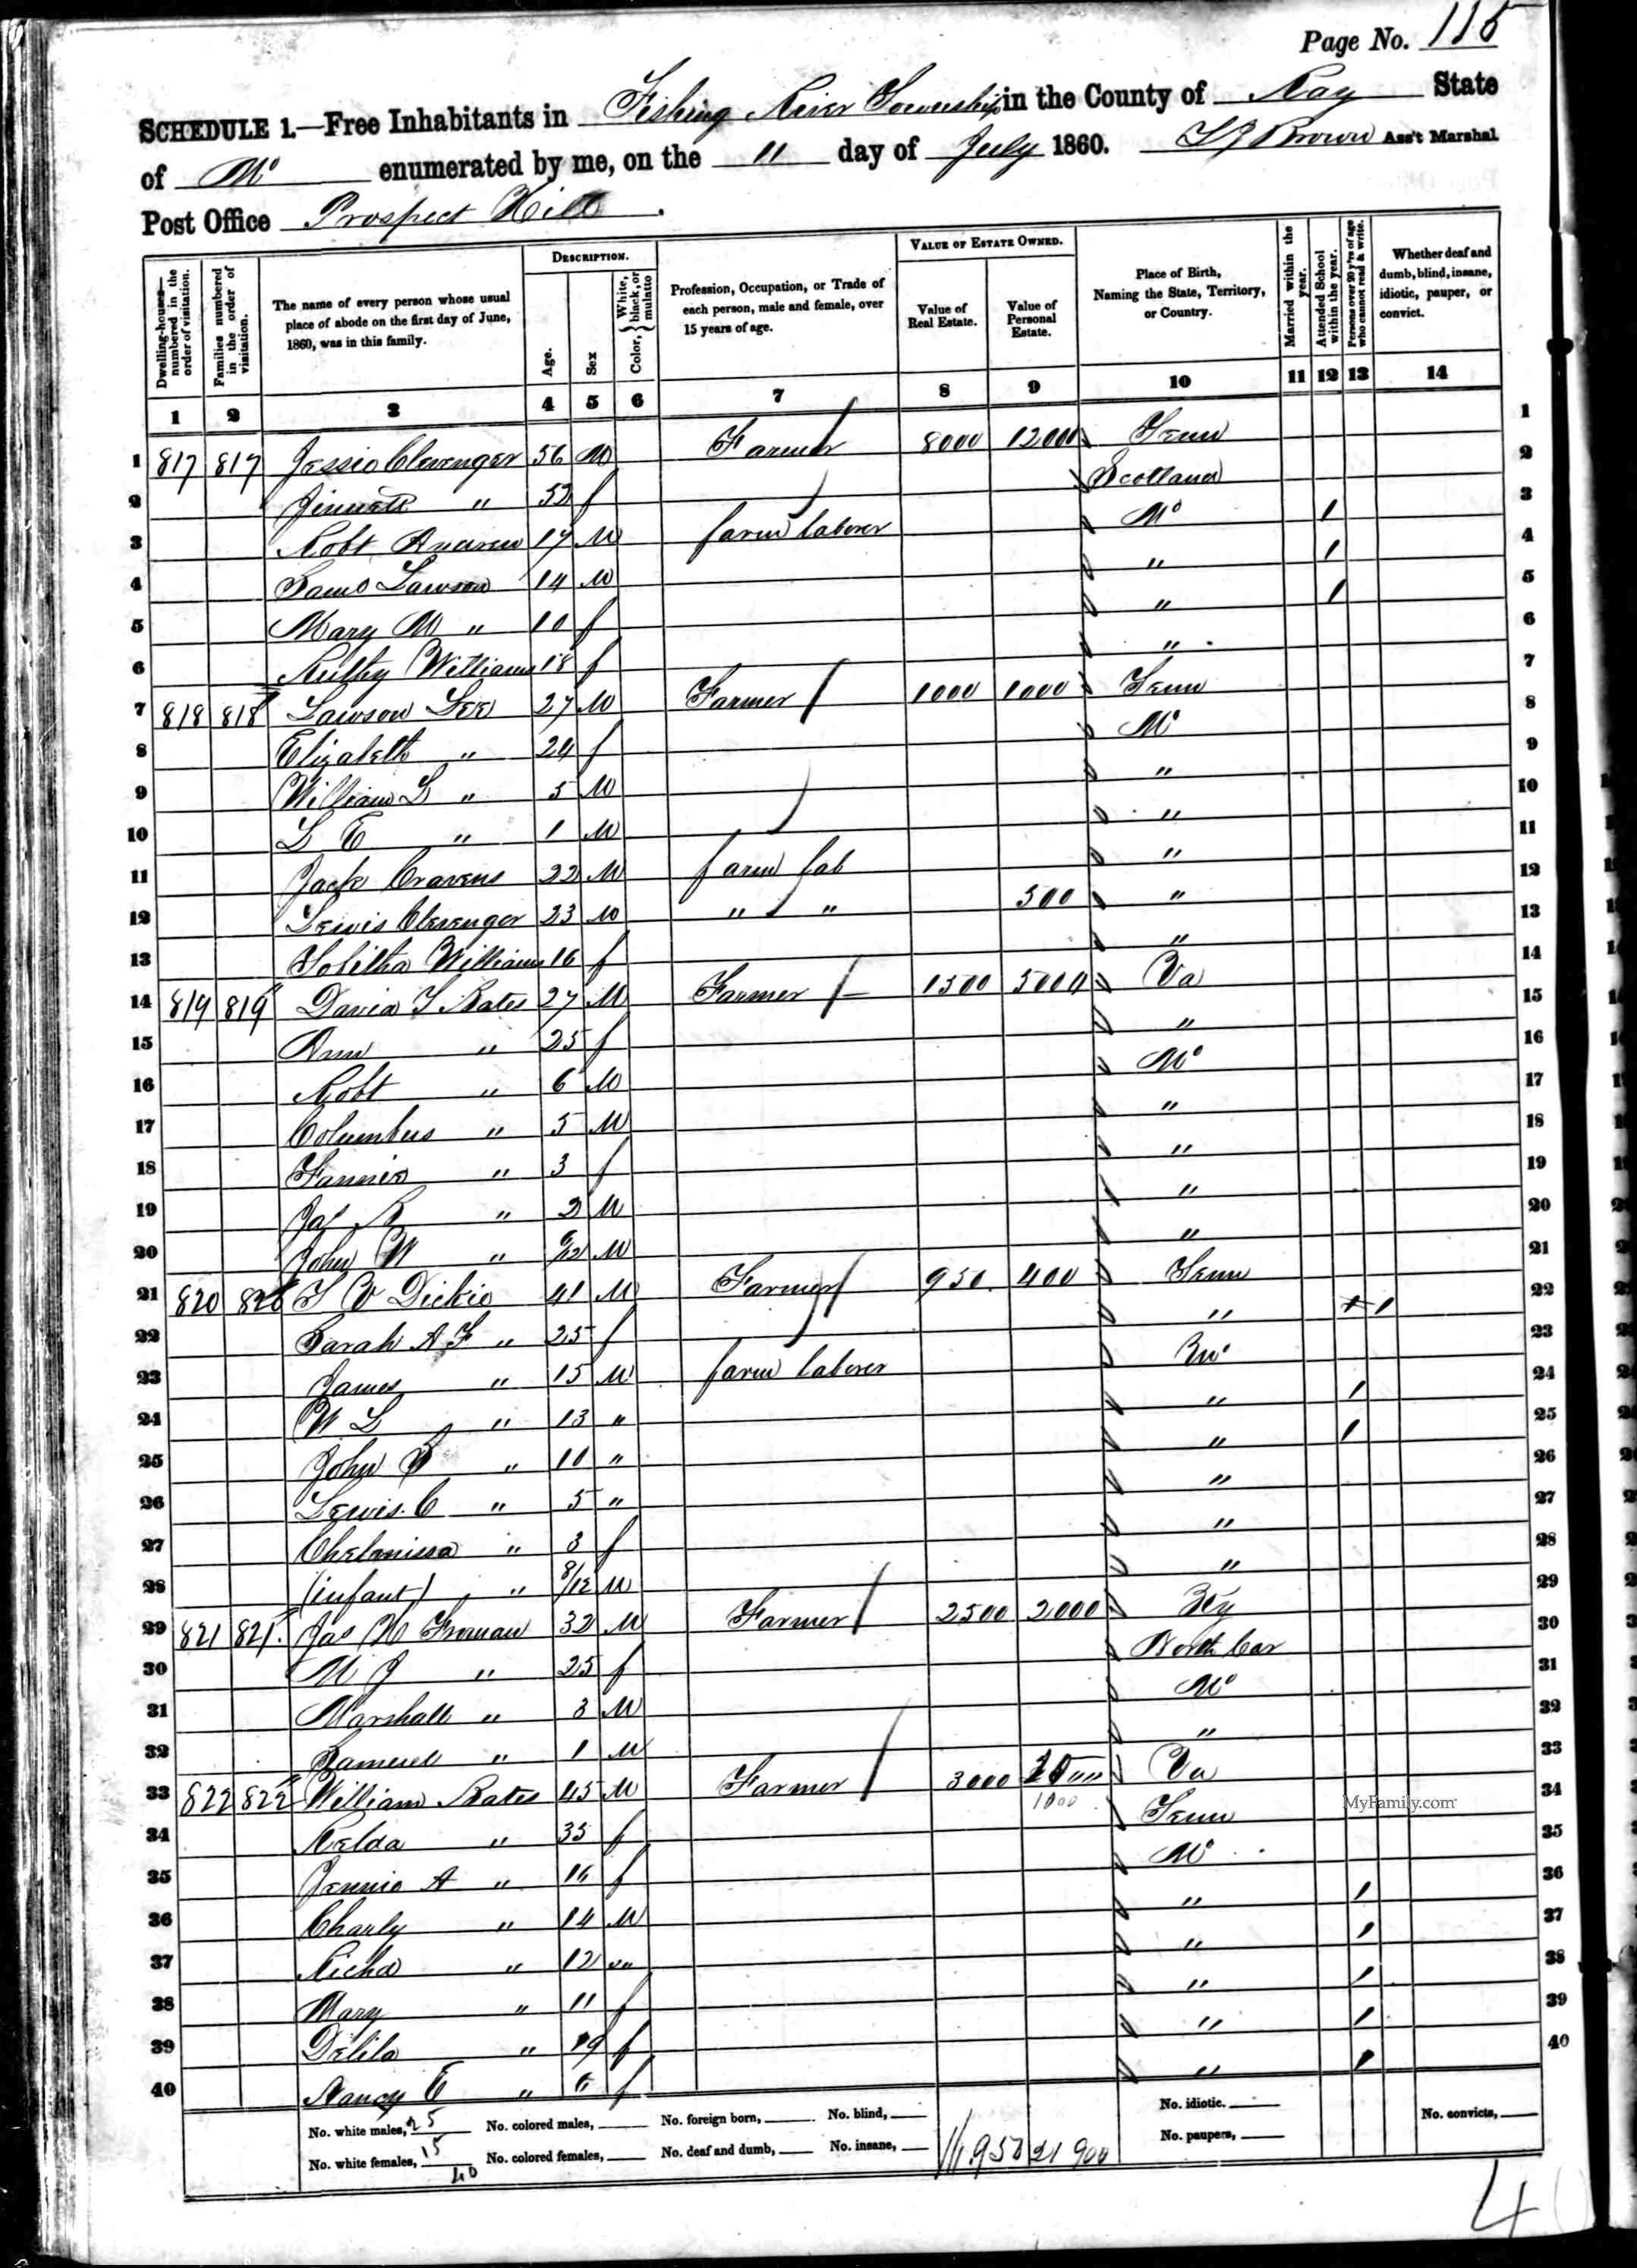 Page No. 115
SCHEDULE 1.—Free Inhabitants in Fishing River Township in the County of Ray State
of Mo enumerated by me, on the 11 day of July 1860. Brown Ass't Marshal
Post Office Prospect Hill.
Dwelling-houses—numbered in the order of visitation.
Families numbered in the order of visitation.
The name of every person whose usual place of abode on the first day of June, 1860, was in this family.
DESCRIPTION.
Age.
Sex
Color, White, black, or mulatto
Profession, Occupation, or Trade of each person, male and female, over 15 years of age.
VALUE OF ESTATE OWNED.
Value of Real Estate.
Value of Personal Estate.
Place of Birth, Naming the State, Territory, or Country.
Married within the year.
Attended School within the year.
Persons over 20 y'rs of age who cannot read & write.
Whether deaf and dumb, blind, insane, idiotic, pauper, or convict.
1 2 3 4 5 6 7 8 9 10 11 12 13 14
1 817 817 Jessie Clevenger 56 M Farmer 8000 12000 Tenn 1
2 " 52 f Scotland 2
3 Robt Andrew 17 M farm laborer Mo 1 3
4 Lawson 14 M " 1 4
5 Mary M " 10 f " 1 5
6 Williams 18 f " 6
7 818 818 Lawson Lee 27 M Farmer 1000 1000 Tenn 7
8 Elizabeth " 24 f Mo 8
9 William L " 5 M " 9
10 L E " 1 M " 10
11 Jack Cravens 22 M farm lab " 11
12 Lewis Clevenger 23 M " " 300 " 12
13 Williams 16 f " 13
14 819 819 David T Bates 27 M Farmer 1500 5000 Va 14
15 Ann " 25 f " 15
16 Robt " 6 M Mo 16
17 Columbus " 5 M " 17
18 Fannie " 3 f " 18
19 Jas R " 2 M " 19
20 John W " 6/12 M " 20
21 820 820 T V Dickie 41 M Farmer 950 400 Tenn 21
22 Sarah A F " 25 f " 1 22
23 James " 15 M farm laborer Mo 23
24 W L " 13 " " 1 24
25 John " 10 " " 1 25
26 Lewis C " 5 " " 26
27 " 3 f " 27
28 (infant) " 8/12 M " 28
29 821 821 Jas H Froman 32 M Farmer 2500 2000 Ky 29
30 M J " 25 f North Car 30
31 Marshall " 3 M Mo 31
32 Samuel " 1 M " 32
33 822 822 William Bates 45 M Farmer 3000 Va 33
1000
34 " 35 f Tenn 34
35 Jennie A " 16 f Mo 35
36 Charly " 14 M " 1 36
37 " 12 " " 1 37
38 Mary " 11 f " 1 38
39 Delila " 9 f " 1 39
40 Nancy E " 6 f " 1 40
MyFamily.com
No. white males, 25 No. colored males, No. foreign born, No. blind, No. idiotic. No. convicts,
No. white females, 15 No. colored females, No. deaf and dumb, No. insane, No. paupers,
40
16,950 21 900
4